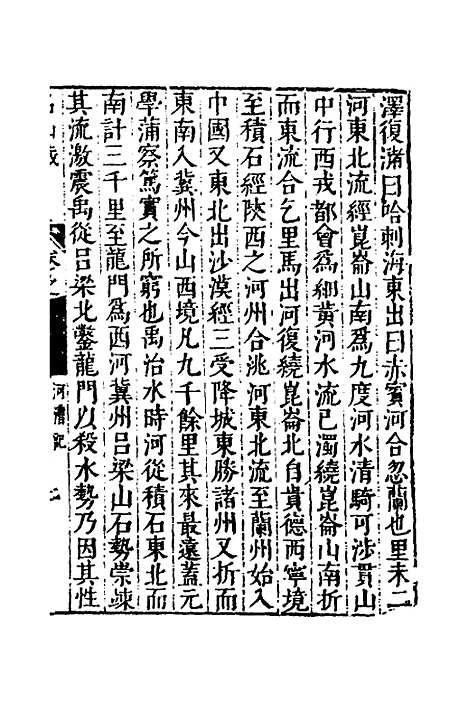 澤復瀦曰哈剌海東出曰赤賓河合忽蘭也里朮二
河東北流經崑崙山南爲九度河水清騎可涉貫山
中行西戎都會爲細黃河水流已濁繞崑崙山南折
而東流合乞里馬出河復繞崑崙北自貴德西寧境
至積石經陝西之河州合洮河東北流至蘭州始入
中國又東北出沙漠經三受降城東勝諸州又折而
東南入冀州今山西境凡九千餘里其來最遠蓋元
學蒲察篤實之所窮也禹治水時河從積石東北而
南計三千里至龍門爲西河冀州呂梁山石勢崇竦
其流激震禹從呂梁北鑿龍門以殺水勢乃因其性
名山藏
卷之
河漕記
七